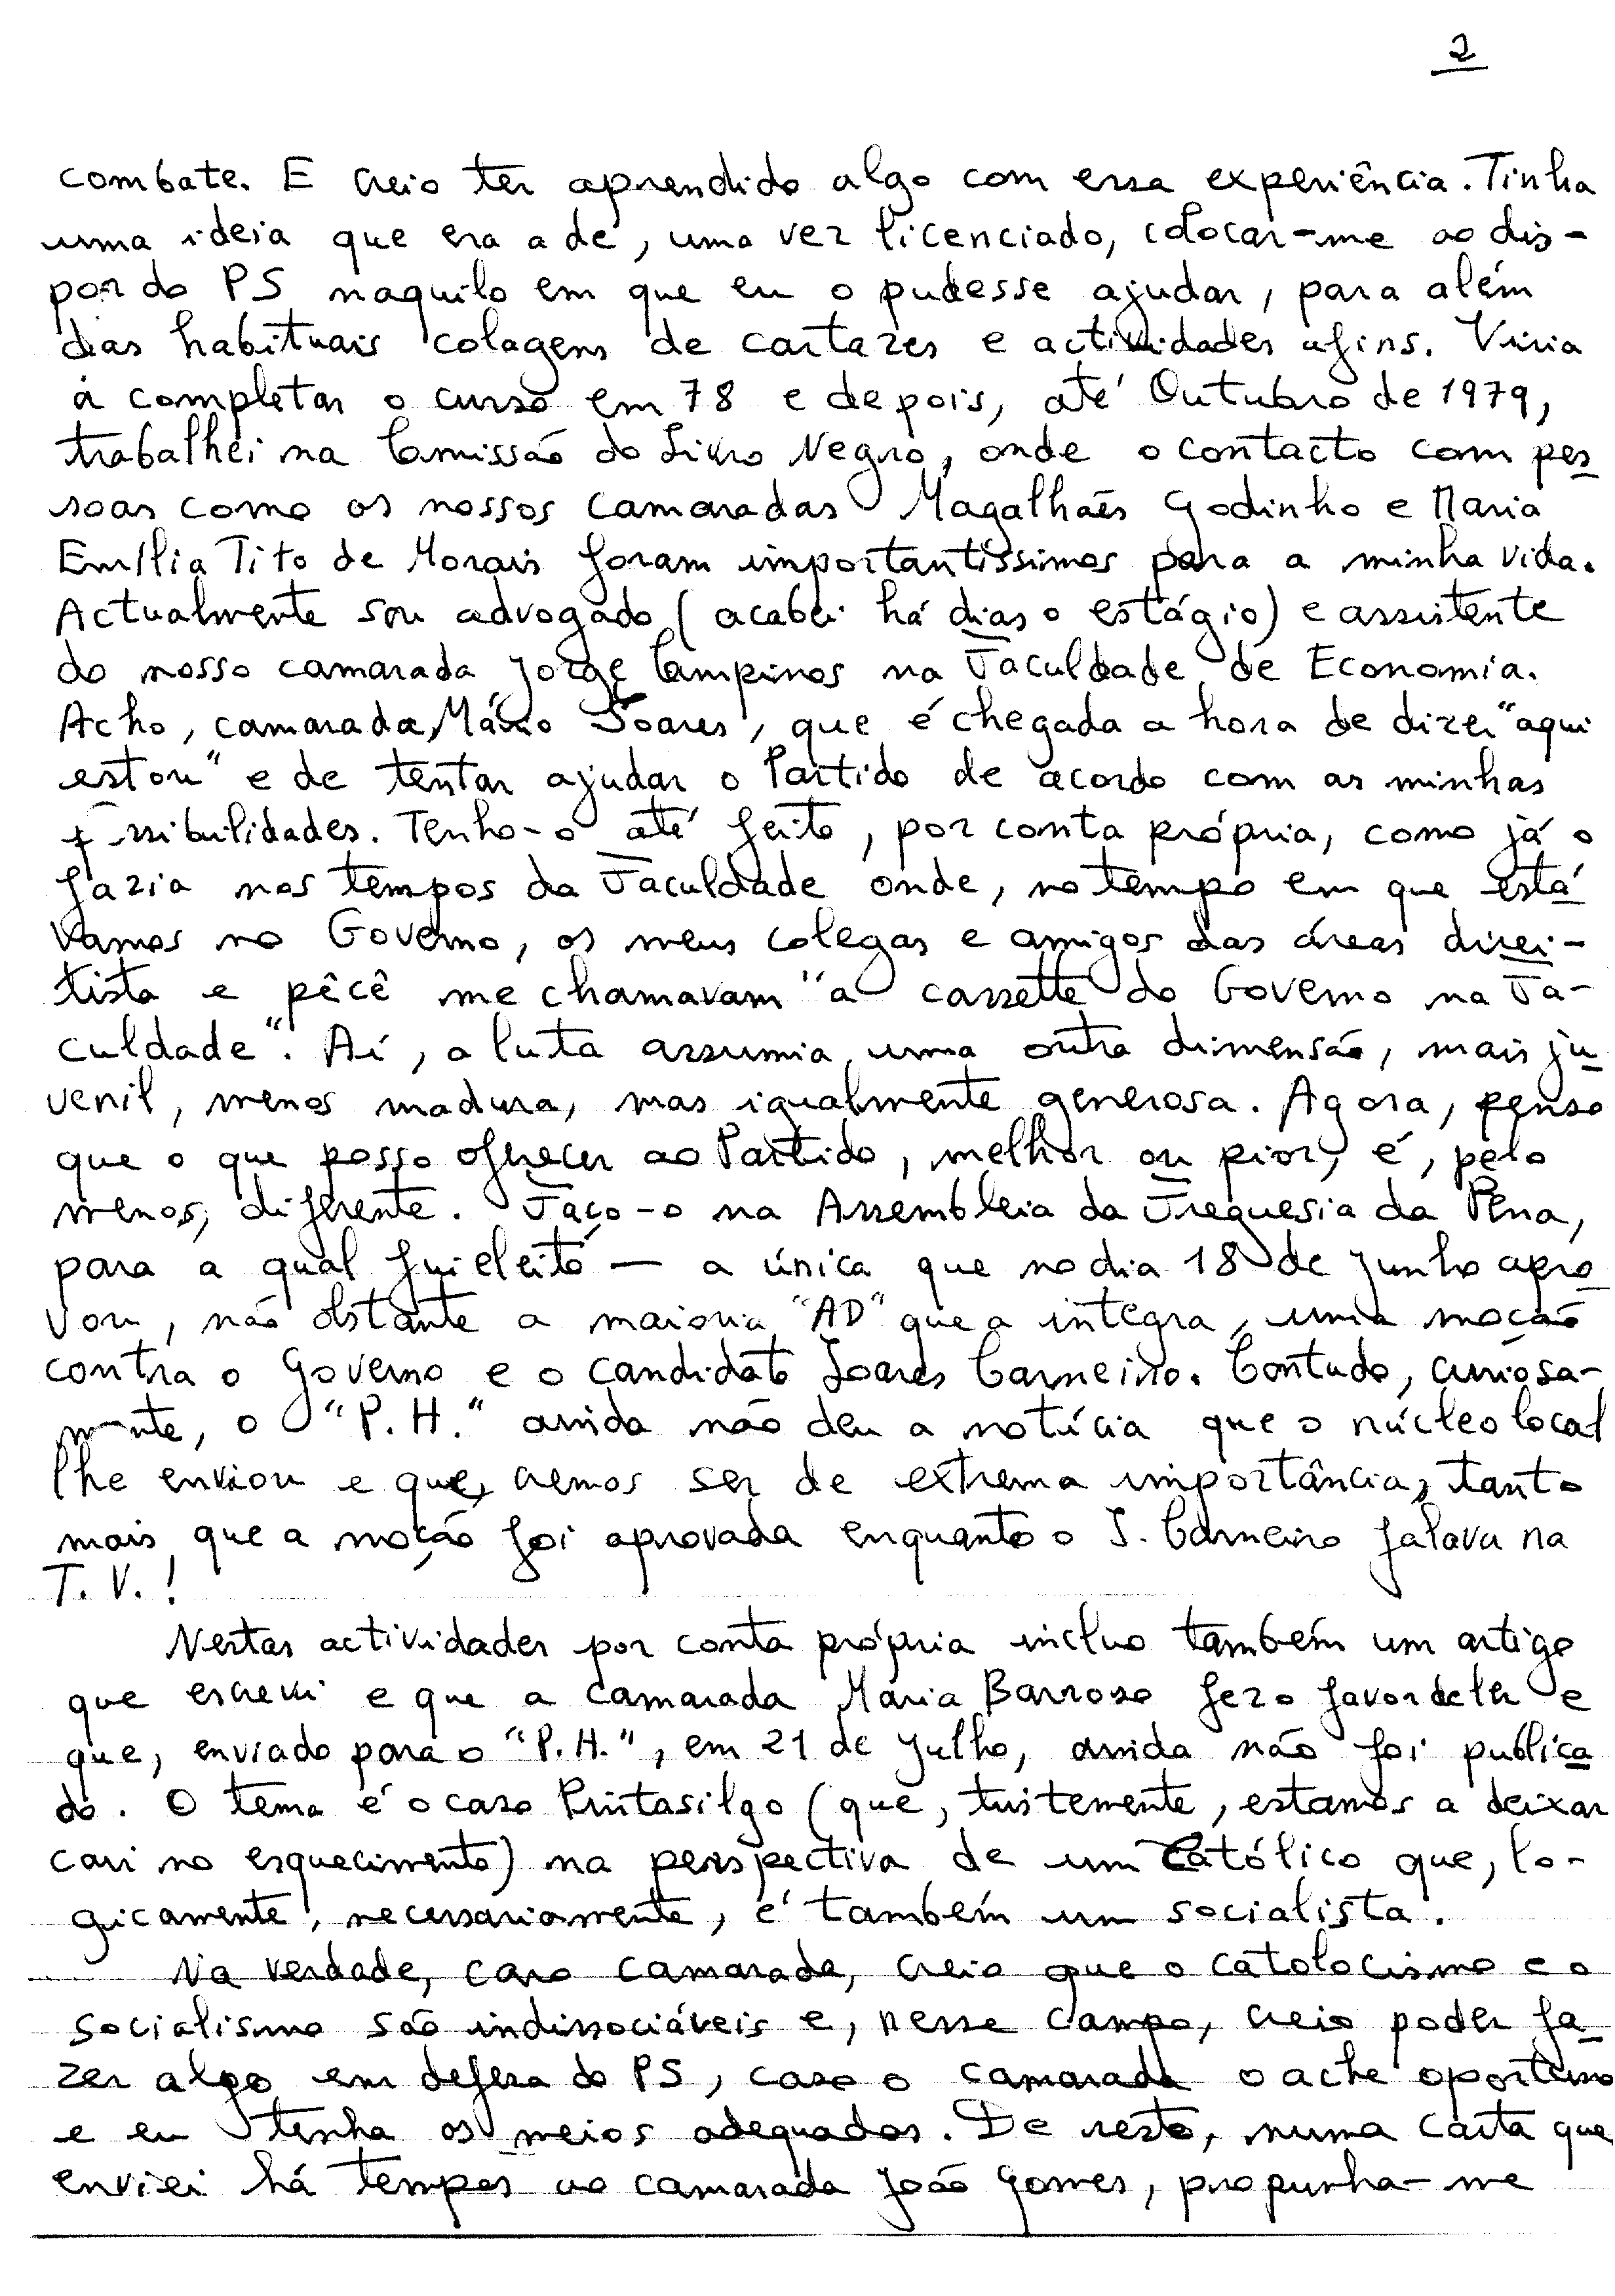 2
combate. E creio ter aprendido algo com essa experiência. Tinha
uma ideia que era a de, uma vez licenciado, colocar-me ao dis-
por do PS naquilo em que eu o pudesse ajudar, para além
das habituais colagens de cartazes e actividades afins. Viria
a completar o curso em 78 e depois, até Outubro de 1979,
trabalhei na Comissão do Livro Negro, onde o contacto com pes
soas como os nossos camaradas Magalhães Godinho e Maria
Emília Tito de Morais foram importantíssimos para a minha vida.
Actualmente sou advogado (acabei há dias o estágio) e assistente
do nosso camarada Jorge Campinos na Faculdade de Economia.
Acho, camarada Mário Soares, que é chegada a hora de dizer "aqui
estou" e de tentar ajudar o Partido de acordo com as minhas
possibilidades. Tenho-o até feito, por conta própria, como já o
fazia nos tempos da Faculdade onde, no tempo em que está
vamos no Governo, os meus colegas e amigos das áreas direi-
tista e pêcê me chamavam "a cassette do Governo na Fa-
culdade". Aí, a luta assumia uma outra dimensão, mais ju
venil, menos madura, mas igualmente generosa. Agora, penso
que o que posso oferecer ao Partido, melhor ou pior, é, pelo
menos, diferente. Faço-o na Assembleia da Freguesia da Pena,
para a qual fui eleito — a única que no dia 18 de Junho apro
vou, não obstante a maioria "AD" que a integra, uma moção
contra o Governo e o candidato Soares Carneiro. Contudo, curiosa-
mente, o "P.H." ainda não deu a notícia que o núcleo local
lhe enviou e que, cremos ser de extrema importância, tanto
mais que a moção foi aprovada enquanto o S. Carneiro falava na
T.V.!
Nestas actividades por conta própria incluo também um artigo
que escrevi e que a camarada Maria Barroso fez o favor de ler e
que, enviado para o "P.H.", em 21 de Julho, ainda não foi publica
do. O tema é o caso Pintasilgo (que, tristemente, estamos a deixar
cair no esquecimento) na perspectiva de um Católico que, lo-
gicamente, necessariamente, é também um socialista.
Na verdade, caro camarada, creio que o catolocismo e o
socialismo são indissociáveis e, nesse campo, creio poder fa-
zer algo em defesa do PS, caso o camarada o ache oportuno
e eu tenha os meios adequados. De resto, numa carta que
enviei há tempos ao camarada João Gomes, propunha-me